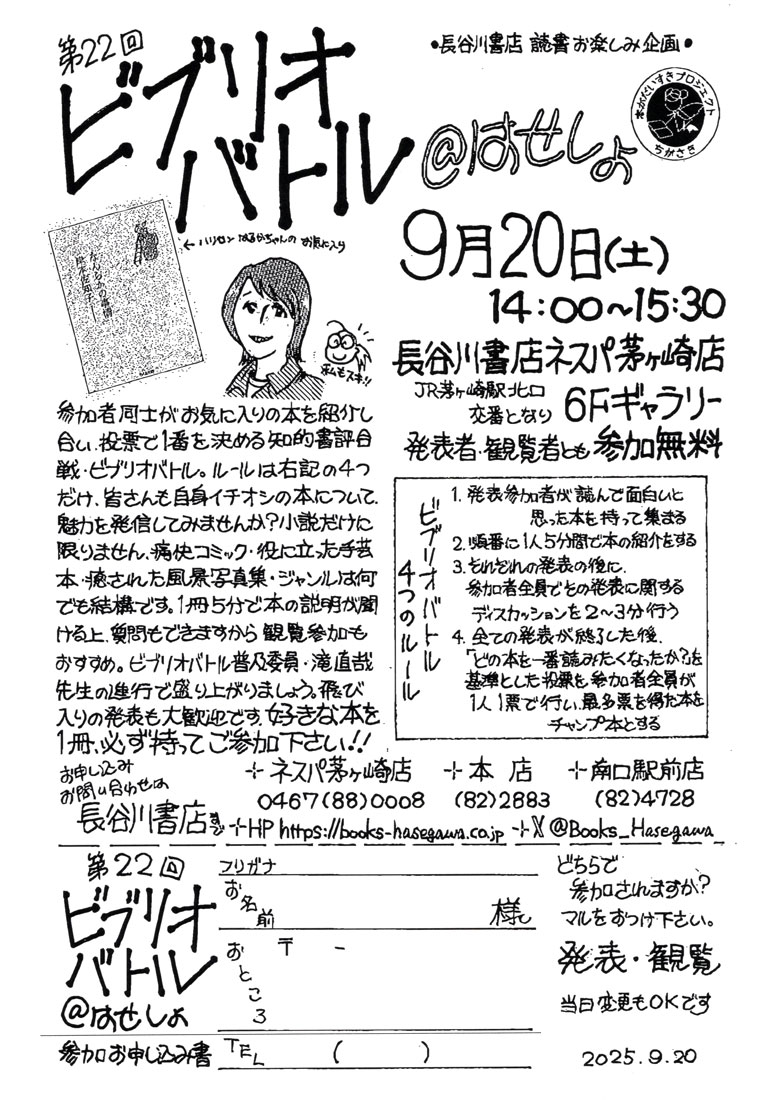 第22回
ビブリオ
バトル
@はせしょ
•長谷川書店 読書お楽しみ企画•
本がだいすきプロジェクト
ちがさき
←ハリセン はるかちゃんの お気に入り
ボクもスキ!!
9月20日(土)
14:00〜15:30
長谷川書店ネスパ茅ヶ崎店
JR茅ヶ崎駅北口
交番となり
6Fギャラリー
発表者・観覧者とも参加無料
参加者同士がお気に入りの本を紹介し
合い、投票で1番を決める知的書評合
戦・ビブリオバトル。ルールは右記の4つ
だけ、皆さんも自身イチオシの本について、
魅力を発信してみませんか?小説だけに
限りません、痛快コミック・役に立った手芸
本・癒された風景写真集・ジャンルは何
でも結構です。1冊5分で本の説明が聞
ける上、質問もできますから観覧参加も
おすすめ。ビブリオバトル普及委員・滝直哉
先生の進行で盛り上がりましょう。飛び
入りの発表も大歓迎です、好きな本を
1冊、必ず持ってご参加下さい!!
ビブリオバトル
4つのルール
1. 発表参加者が読んで面白いと
思った本を持って集まる
2. 順番に1人5分間で本の紹介をする
3. それぞれの発表の後に、
参加者全員でその発表に関する
ディスカッションを2〜3分行う
4. 全ての発表が終了した後、
「どの本を一番読みたくなったか?」を
基準とした投票を参加者全員が
1人1票で行い、最多票を得た本を
チャンプ本とする
お申し込み
お問い合わせは
長谷川書店まで
ネスパ茅ヶ崎店
0467(88)0008
本店
(82)2883
南口駅前店
(82)4728
HP https://books-hasegawa.co.jp
X @Books_Hasegawa
第22回
ビブリオ
バトル
@はせしょ
参加お申し込み書
フリガナ
お名前
様
おところ
〒 -
TEL ( )
どちらで
参加されますか?
マルをおつけ下さい。
発表・観覧
当日変更もOKです
2025.9.20